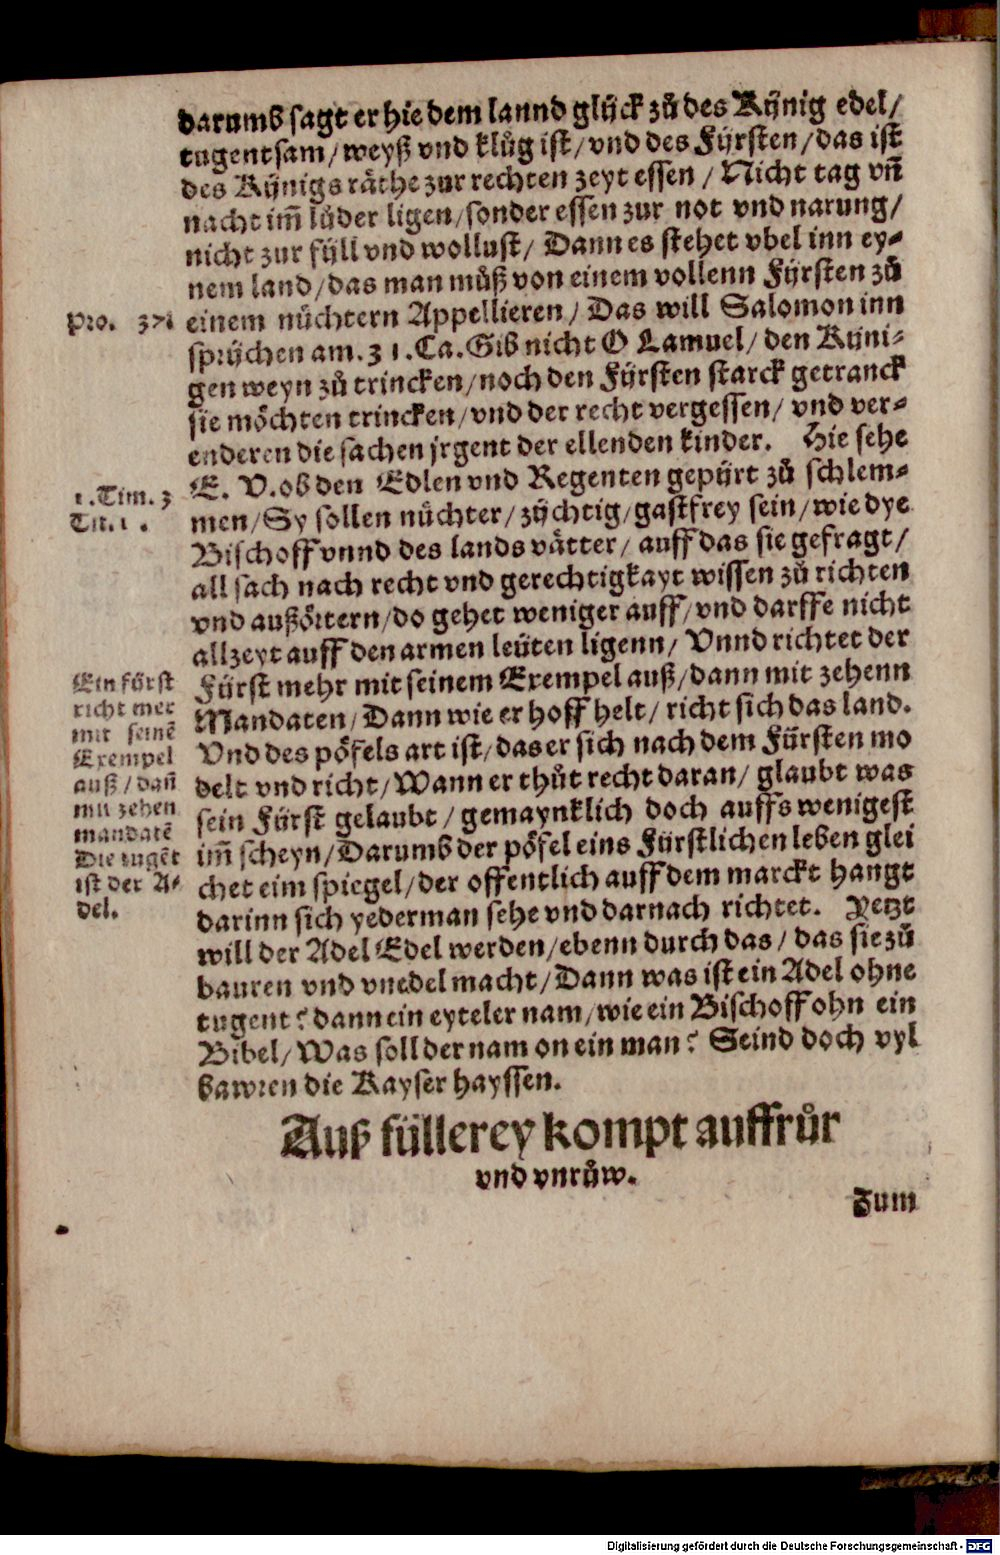 darumb sagt er hie dem lannd glück zů des Künig edel/
tugentsam/weyß vnd klůg ist/vnd des Fürsten/das ist
des Künigs räthe zur rechten zeyt essen / Nicht tag vn̄
nacht im̄ lůder ligen/sonder essen zur not vnd narung/
nicht zur füll vnd wollust/ Dann es stehet vbel inn ey-
nem land/das man můß von einem vollenn Fürsten zů
Pro.
einem nüchtern Appellieren/ Das will Salomon inn
sprüchen am. 31. Ca. Gib nicht O Lamuel/ den Küni-
gen weyn zů trincken/noch den Fürsten starck getranck
sie möchten trincken/vnd der recht vergessen/ vnd ver-
enderen die sachen jrgent der ellenden kinder. Hie sehe
1. Tim. 3
Tit. 1.
E. V. ob den Edlen vnd Regenten gepürt zů schlem-
men/Sy sollen nüchter/züchtig/gastfrey sein/wie dye
Bischoff vnnd des lands vätter/ auff das sie gefragt/
all sach nach recht vnd gerechtigkayt wissen zů richten
vnd außörtern/do gehet weniger auff/vnd darffe nicht
allzeyt auff den armen leüten ligenn/ Vnnd richtet der
Ein fürst
richt mer
mit seinē
Exempel
auß/dañ
mit zehen
mandatē
Die tugēt
ist der A-
del.
Fürst mehr mit seinem Exempel auß/dann mit zehenn
Mandaten/Dann wie er hoff helt/ richt sich das land.
Vnd des pöfels art ist/das er sich nach dem Fürsten mo
delt vnd richt/Wann er thůt recht daran/ glaubt was
sein Fürst gelaubt/ gemaynklich doch auffs wenigest
im̄ scheyn/Darumb der pöfel eins Fürstlichen leben glei
chet eim spiegel/der offentlich auff dem marckt hangt
darinn sich yederman sehe vnd darnach richtet. Yetzt
will der Adel Edel werden/ebenn durch das/ das sie zů
bauren vnd vnedel macht/Dann was ist ein Adel ohne
tugent? dann ein eyteler nam/wie ein Bischoff ohn ein
Bibel/Was soll der nam on ein man? Seind doch vyl
bawren die Kayser hayssen.
Auß füllerey kompt auffrůr
vnd vnrůw.
Zum
Digitalisierung gefördert durch die Deutsche Forschungsgemeinschaft - DFG